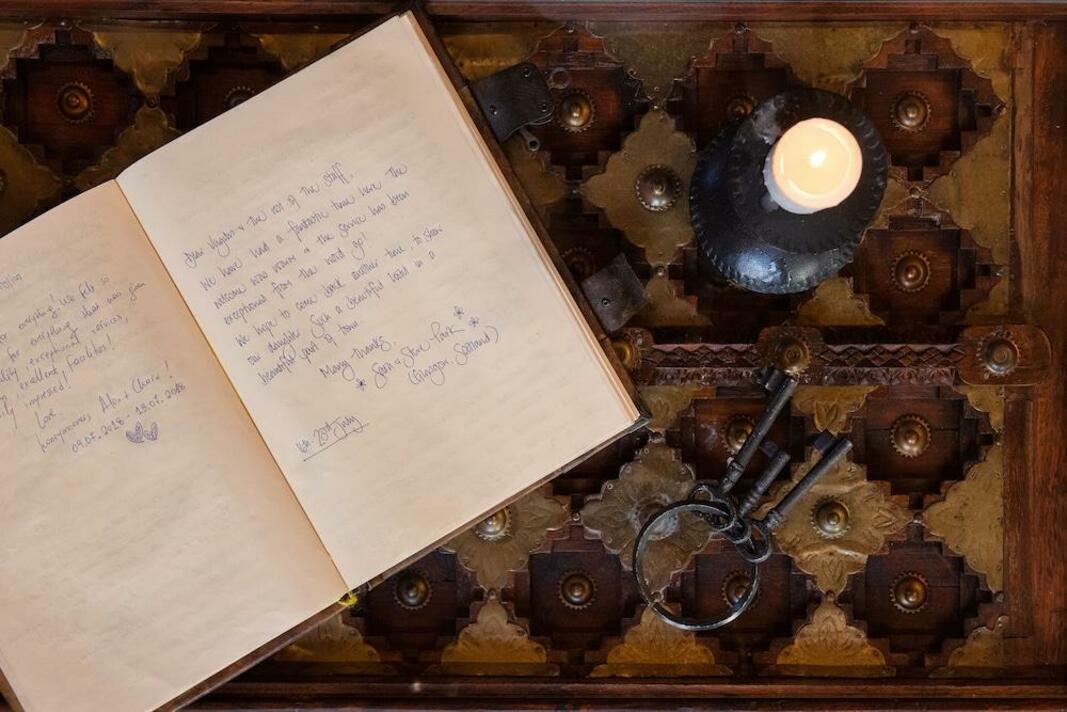 for everything! We felt so
for everything that was from
exceptional services,
excellent facilities!
impressed!
Love.
honeymooners Alex & Chara!
09.07.2018 - 13.07.2018
Dear & the rest of the staff,
We have had a fantastic time here. The
welcome was warm & the service has been
exceptional from the word go!
We hope to come back another time to show
our daughter such a beautiful hotel in a
beautiful part of town
Many thanks,
* Sara & Steve Park *
(Glasgow, Scotland)
16th - 23rd July